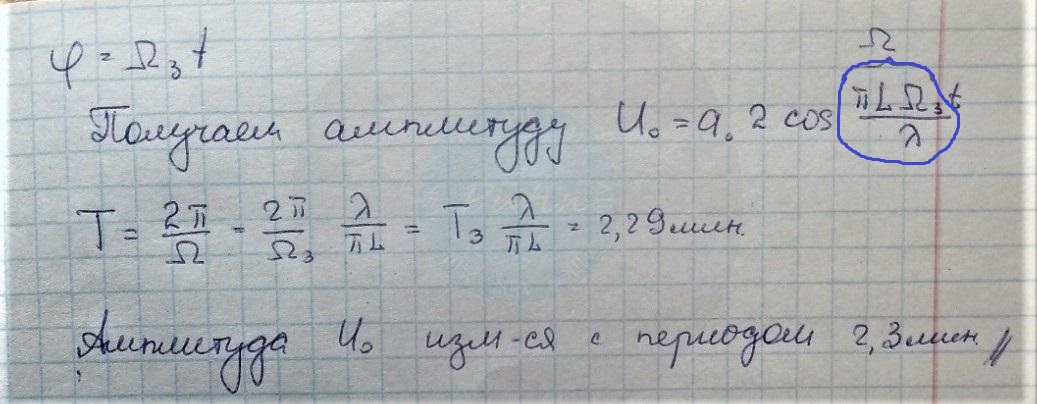 φ = Ω₃ t
Ω
Получаем амплитуду U₀ = a₀ 2 cos πLΩ₃t/λ
T = 2π/Ω = 2π/Ω₃ λ/πL = T₃ λ/πL = 2,29 мин.
Амплитуда U₀ изм-ся с периодом 2,3 мин. //